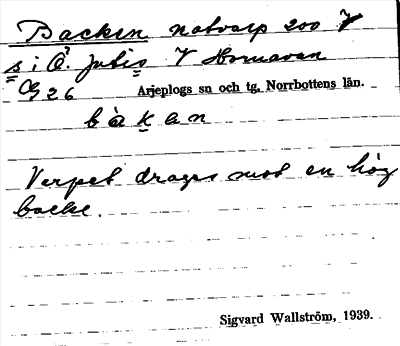 Backen notvarp 200 V
s i Ö. Jutis V Hornavan
Og 26 Arjeplogs sn och tg, Norrbottens län.
bàkan
Varpet drages mot en hög
backe.
Sigvard Wallström, 1939.